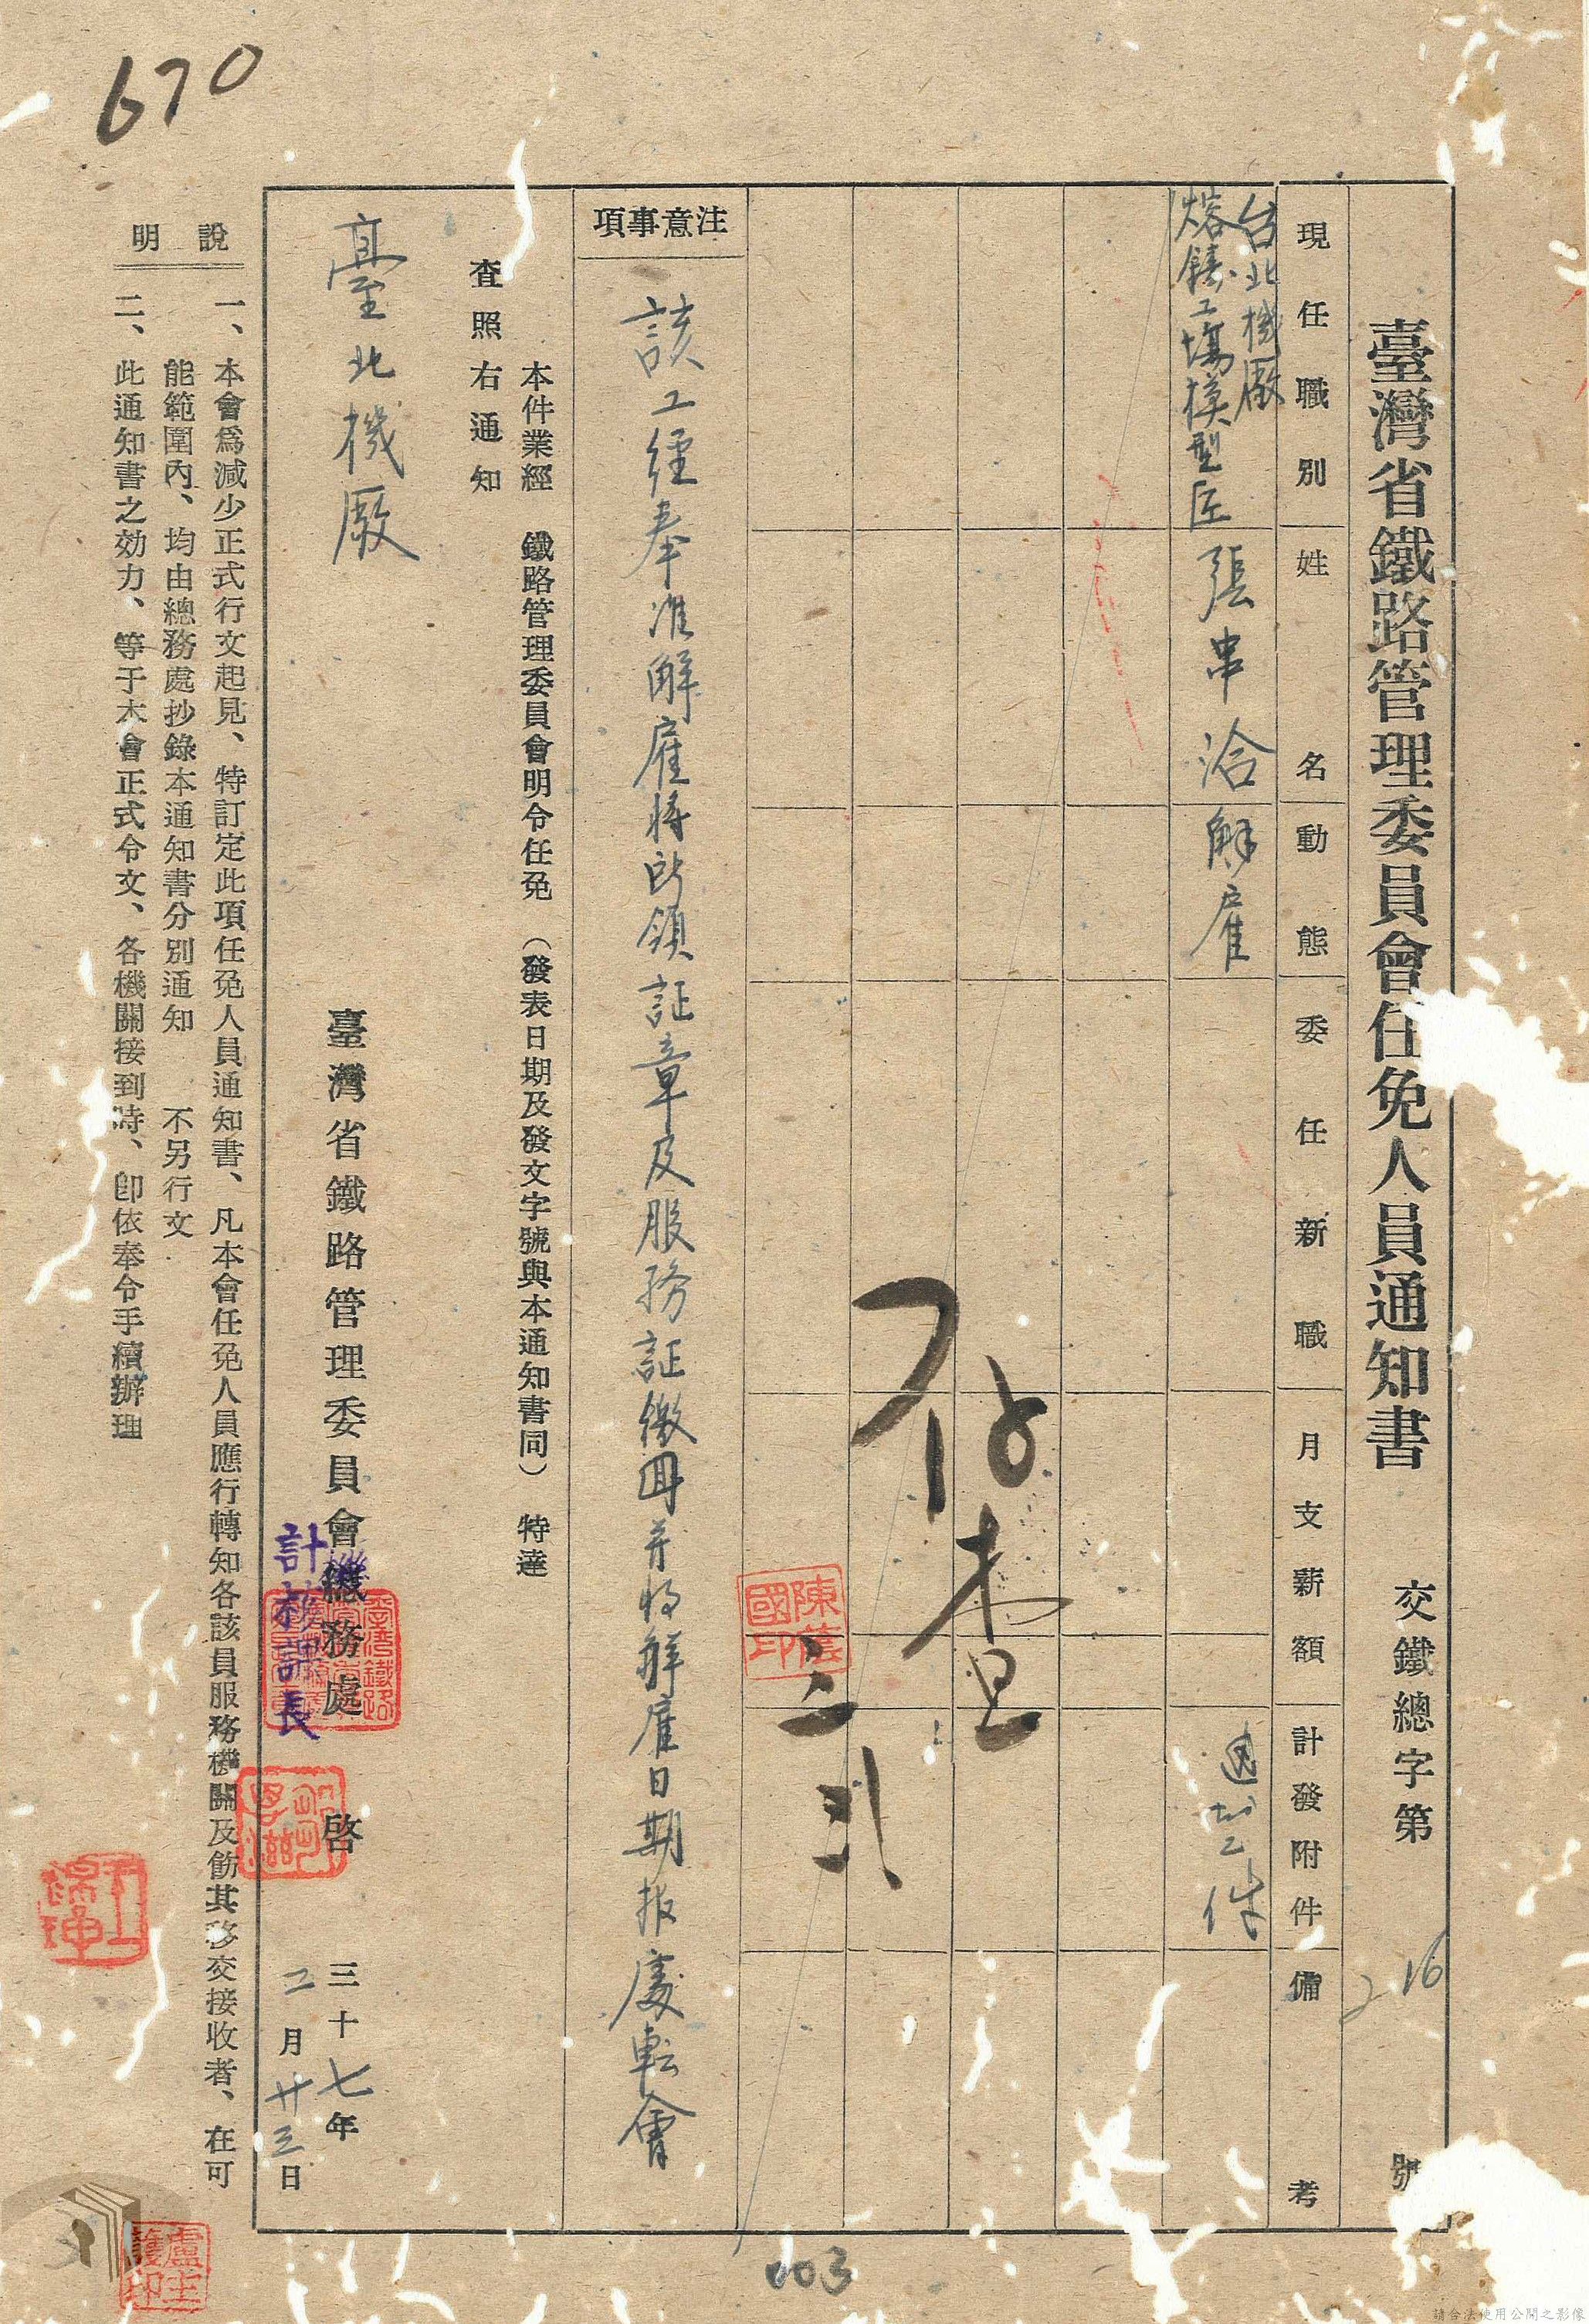 670
臺灣省鐵路管理委員會任免人員通知書
交鐵總字第 號
現任職別
姓名
動態
委任新職
月支薪額
計發附件
備考
台北機廠
熔鑄工場模型匠
張串洽
解雇
存查
注意事項
該工經奉准解雇將所領証章及服務証繳囬并将解雇日期报處転會
本件業經 鐵路管理委員會明令任免 (發表日期及發文字號與本通知書同) 特達
查照右通知
臺北機廠
臺灣省鐵路管理委員會總務處 啓
計核課長
陳蔭國印
三十七年
二月廿三日
說明
一、本會爲減少正式行文起見、特訂定此項任免人員通知書、凡本會任免人員應行轉知各該員服務機關及飭其移交接收者、在可
能範圍內、均由總務處抄錄本通知書分別通知 不另行文
二、此通知書之効力、等于本會正式令文、各機關接到時、卽依奉令手續辦理
003
請合法使用公開之影像